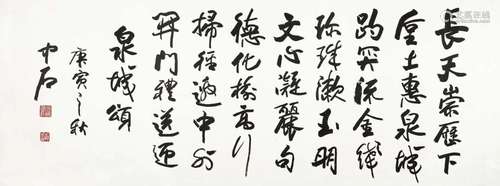 長天崇歷下
厚土惠泉城
趵突流金綫
珎珠漱玉明
文心凝麗句
德化樹高行
掃徑邀中外
開門禮送迎
泉城頌
庚寅之秋
中石